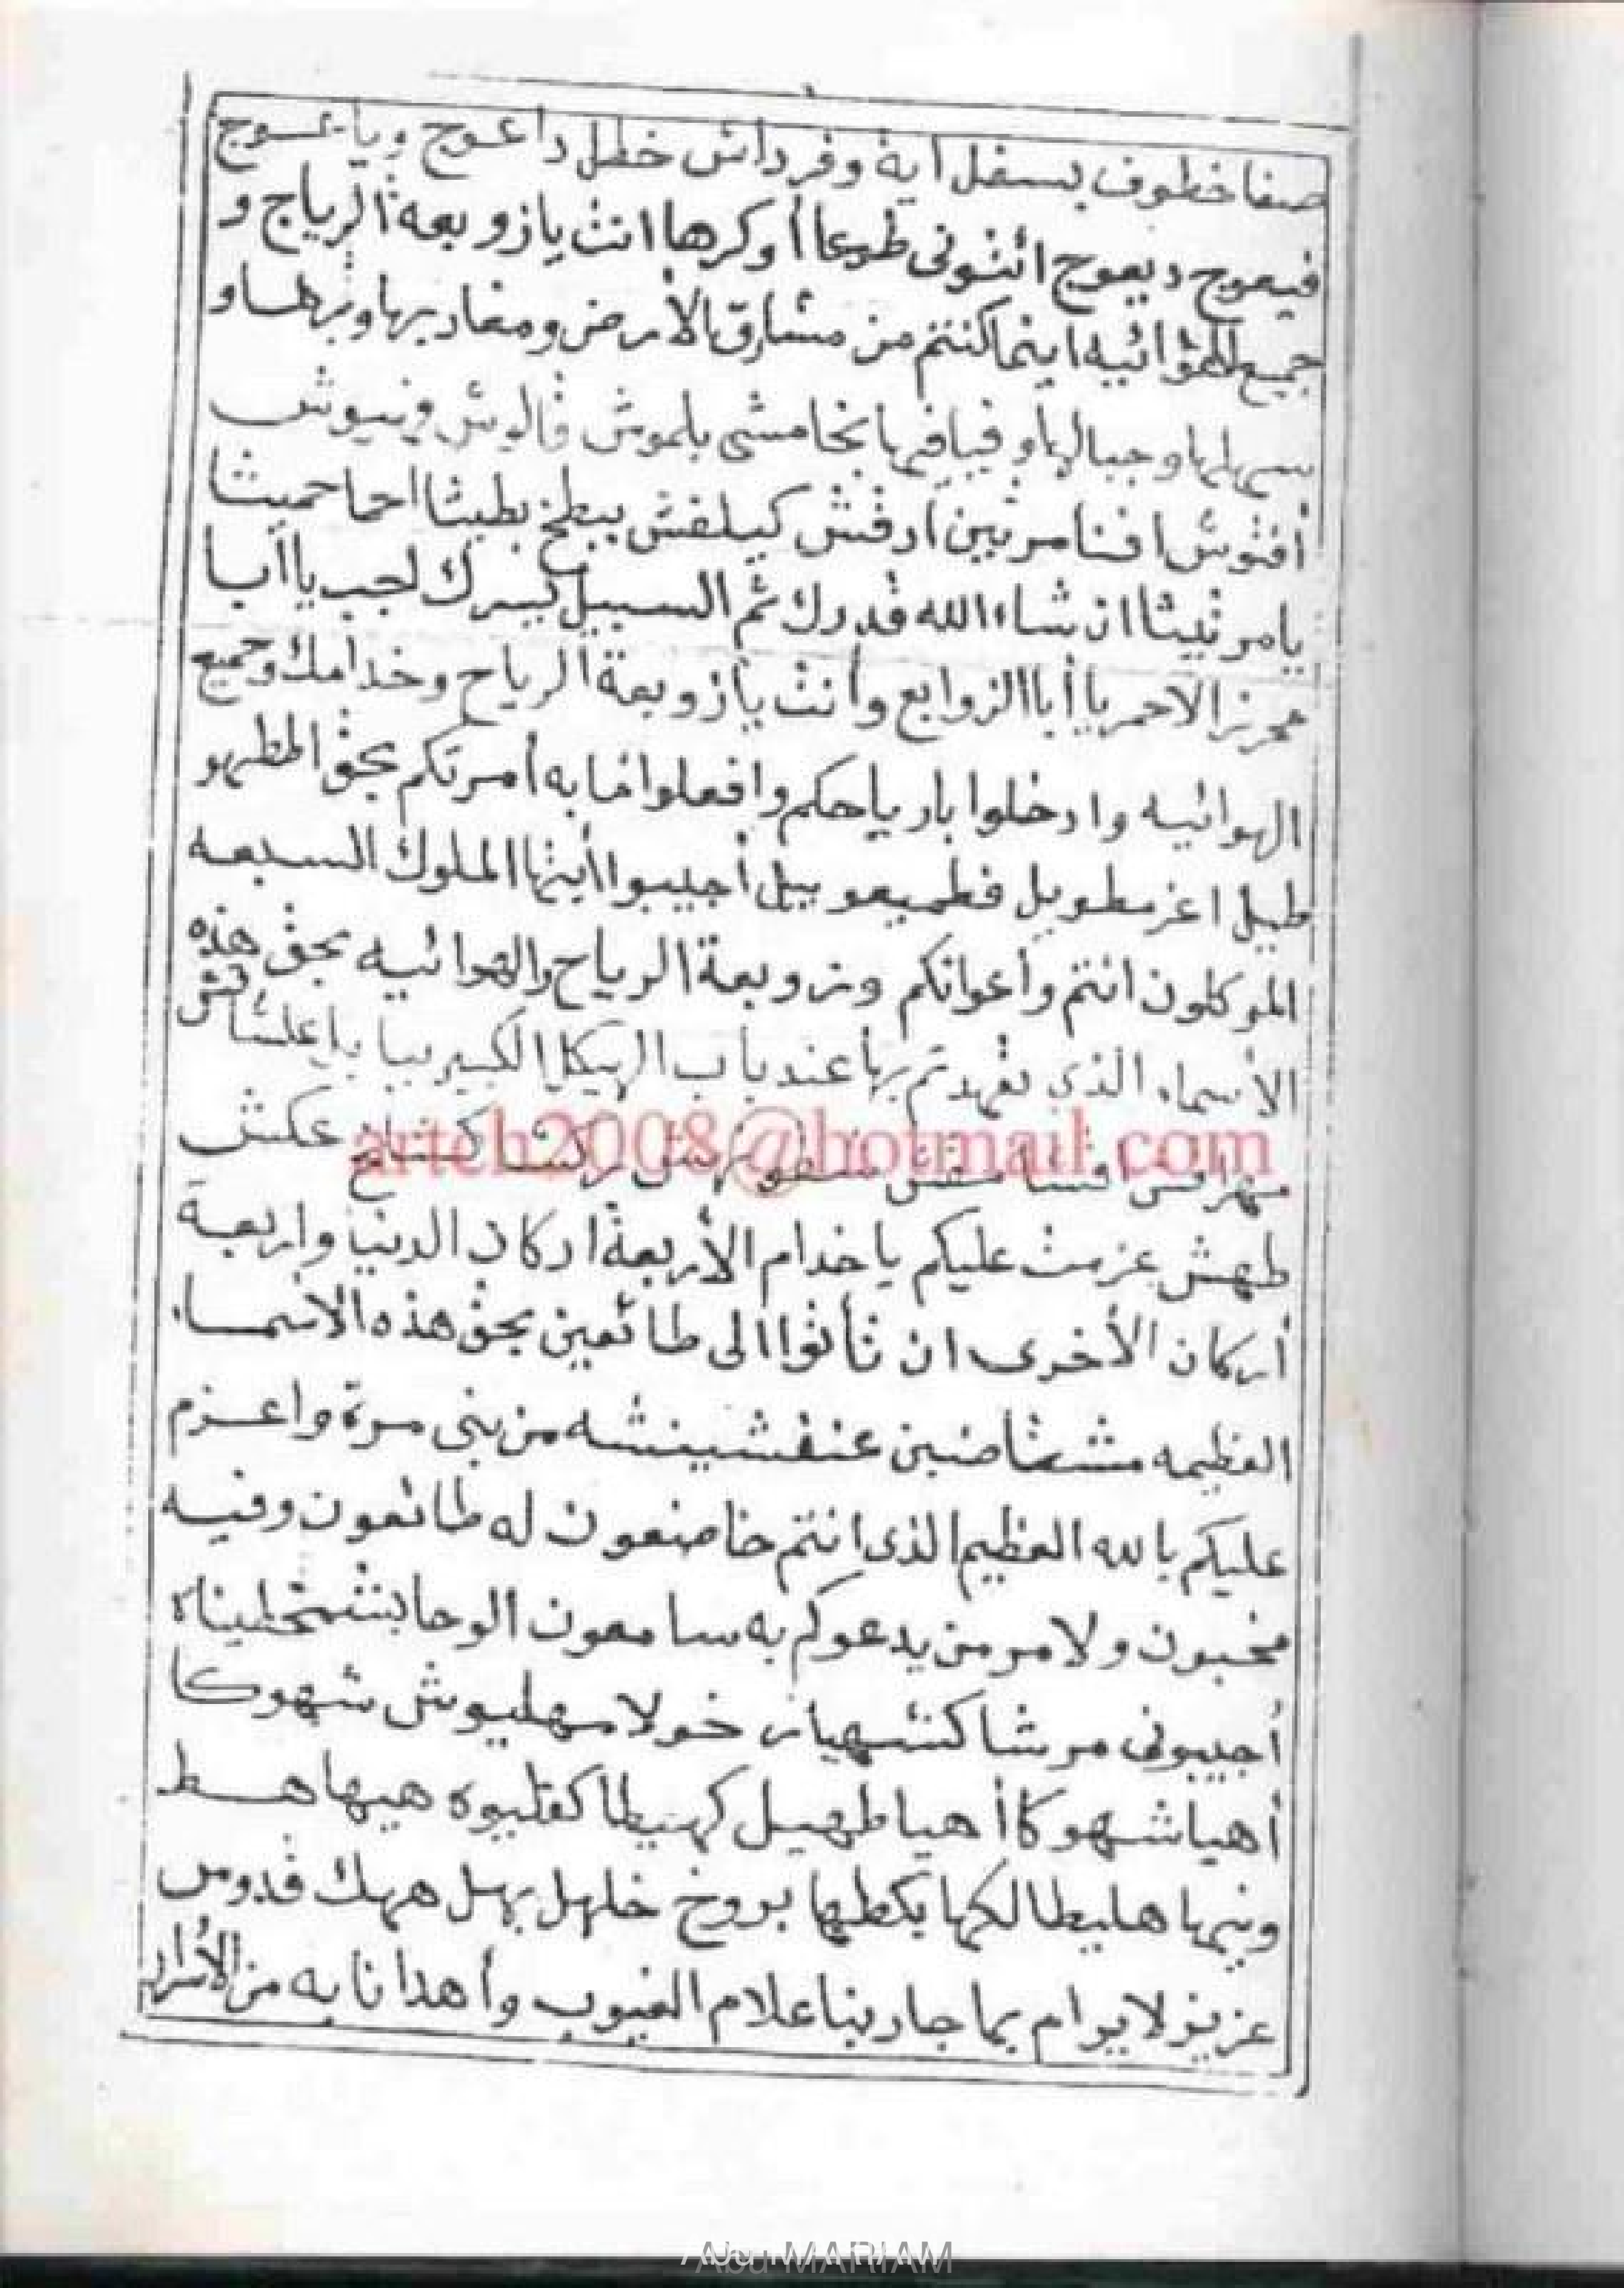 صفا خطوف بسفل اية وفرداش خطل داعوج ويا عوج
فيعوج ديعوج ائتونى طوعا أوكرها انت يازوبعة الرياح و
جميع الهوائيه اينما كنتم من مشارق الأرض ومغاربها وبرها و
سهلها وجبالها وفيافيها بخامشى بلموش قالوش وينيوش
أفنوش افنا مرثين ارقش كيلفش ببطخ بطيثا احما حميثا
يا مرثيثا ان شاء الله قدرك ثم السبيل يسرك لجب يا أبا
محرز الاحمر يا أبا الزوابع وأنت يا زوبعة الرياح وخدامك وجميع
الهوائيه وادخلوا بارياحكم وافعلوا ما به أمرتكم بحق المطهو
طيل اغز مطويل فطميعوييل أجيبوا أيتها الملوك السبعه
الموكلون انتم وأعوانكم وزوبعة الرياح والهوائيه بحق هذه
الأسماء الذى تعهدتم بها عند باب الهيكل الكبير بيا باعلشاقش
مهراقش عكش
طهش عزمت عليكم يا خدام الأربعة اركان الدنيا واربعة
أركان الأخرى ان تأتوا الى طائعين بحق هذه الاسماء
العظيمه مشمخاضين عنقشينشه من بنى مرة واعزم
عليكم بالله العظيم الذى انتم خاضعون له طائعون وفيه
مخبون ولامر من يدعوكم به سامعون الوحا بشمخطيناه
أجيبونى مرشا كنشهياز خولا مهليوش شهوكا
أهيا شهوكا أهيا طهيل كهيطا كقليوه هيها هط
وينها هليطا لكها يكطها بروخ خلهل بهل ههك قدوس
عزيز لا يرام بما جا ربنا علام الغيوب وأهدانا به من الأسرار
arteb2008@hotmail.com
Abu MARIAM